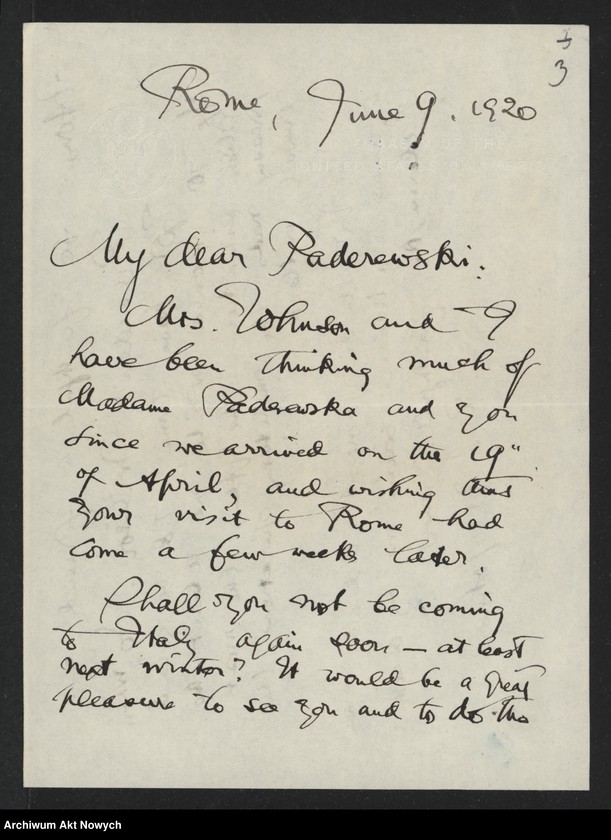 3
Rome, June 9. 1920
EMBASSY OF THE
UNITED STATES OF AMERICA
My dear Paderewski:
Mrs. Johnson and I
have been thinking much of
Madame Paderewska and you
since we arrived on the 19"
of April, and wishing that
your visit to Rome had
come a few weeks later.
Shall you not be coming
to Italy again soon – at least
next winter? It would be a great
pleasure to see you and to do the
Archiwum Akt Nowych